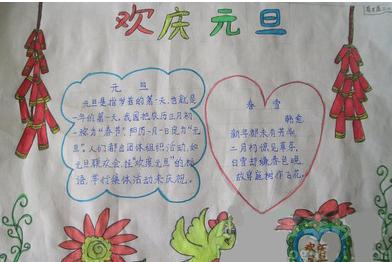 欢庆元旦
元旦
元旦是指岁首的第一天,也就是
一年的第一天。我国把农历正月初
一称为“春节”,阳历一月一日定为“元
旦”。人们都会团体组织活动,如
元旦联欢会,挂“欢度元旦”的标
语,举行集体活动来庆祝。
春雪
韩愈
新年都未有芳华
二月初惊见草芽。
白雪却嫌春色晚
故穿庭树作飞花。
欢